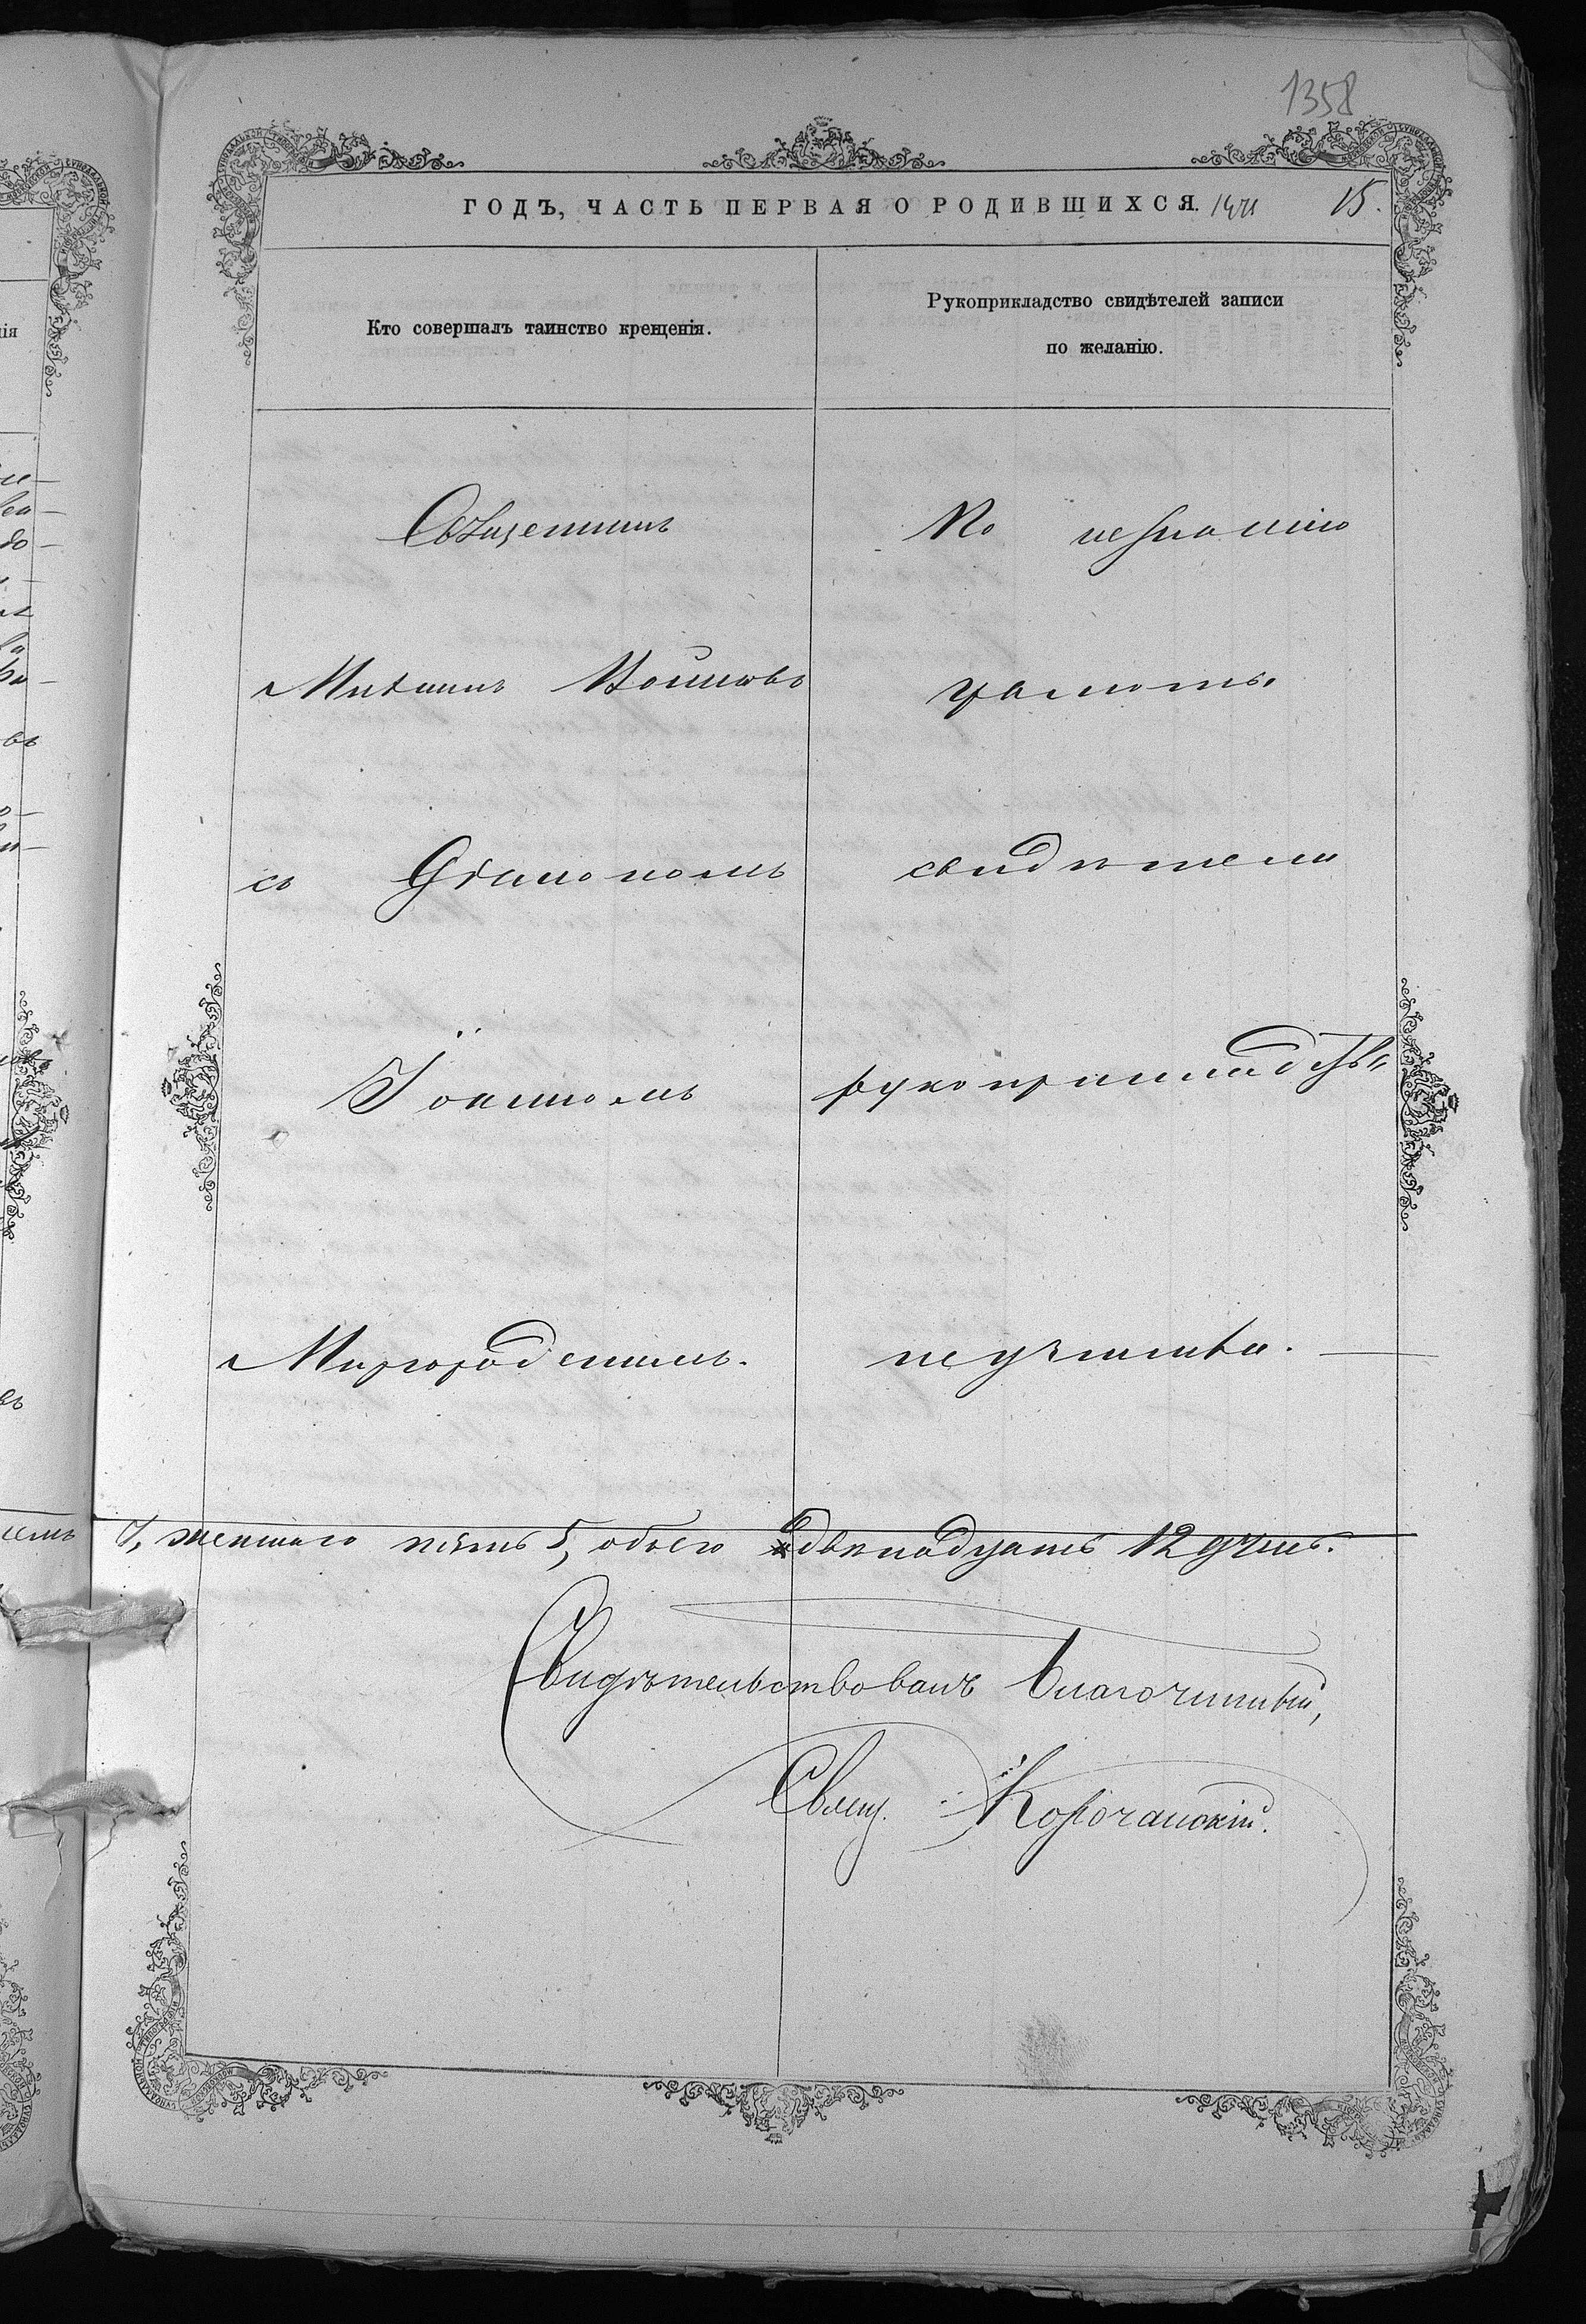 1358
ГОДЪ, ЧАСТЬ ПЕРВАЯ О РОДИВШИХСЯ.
15.
Кто совершалъ таинство крещенія.
Рукоприкладство свидѣтелей записи
по желанію.
Священникъ
Михаилъ
съ Діакономъ
Іоанномъ
Миргородскимъ.
По незнанію
грамоты
свидѣтели
рукоприкладствъ
не учинива.
7, женскаго пять 5, обоего двѣнадцать 12 душъ.
Свидѣтельствовалъ Благочинный,
Свящ. Корочанскій.